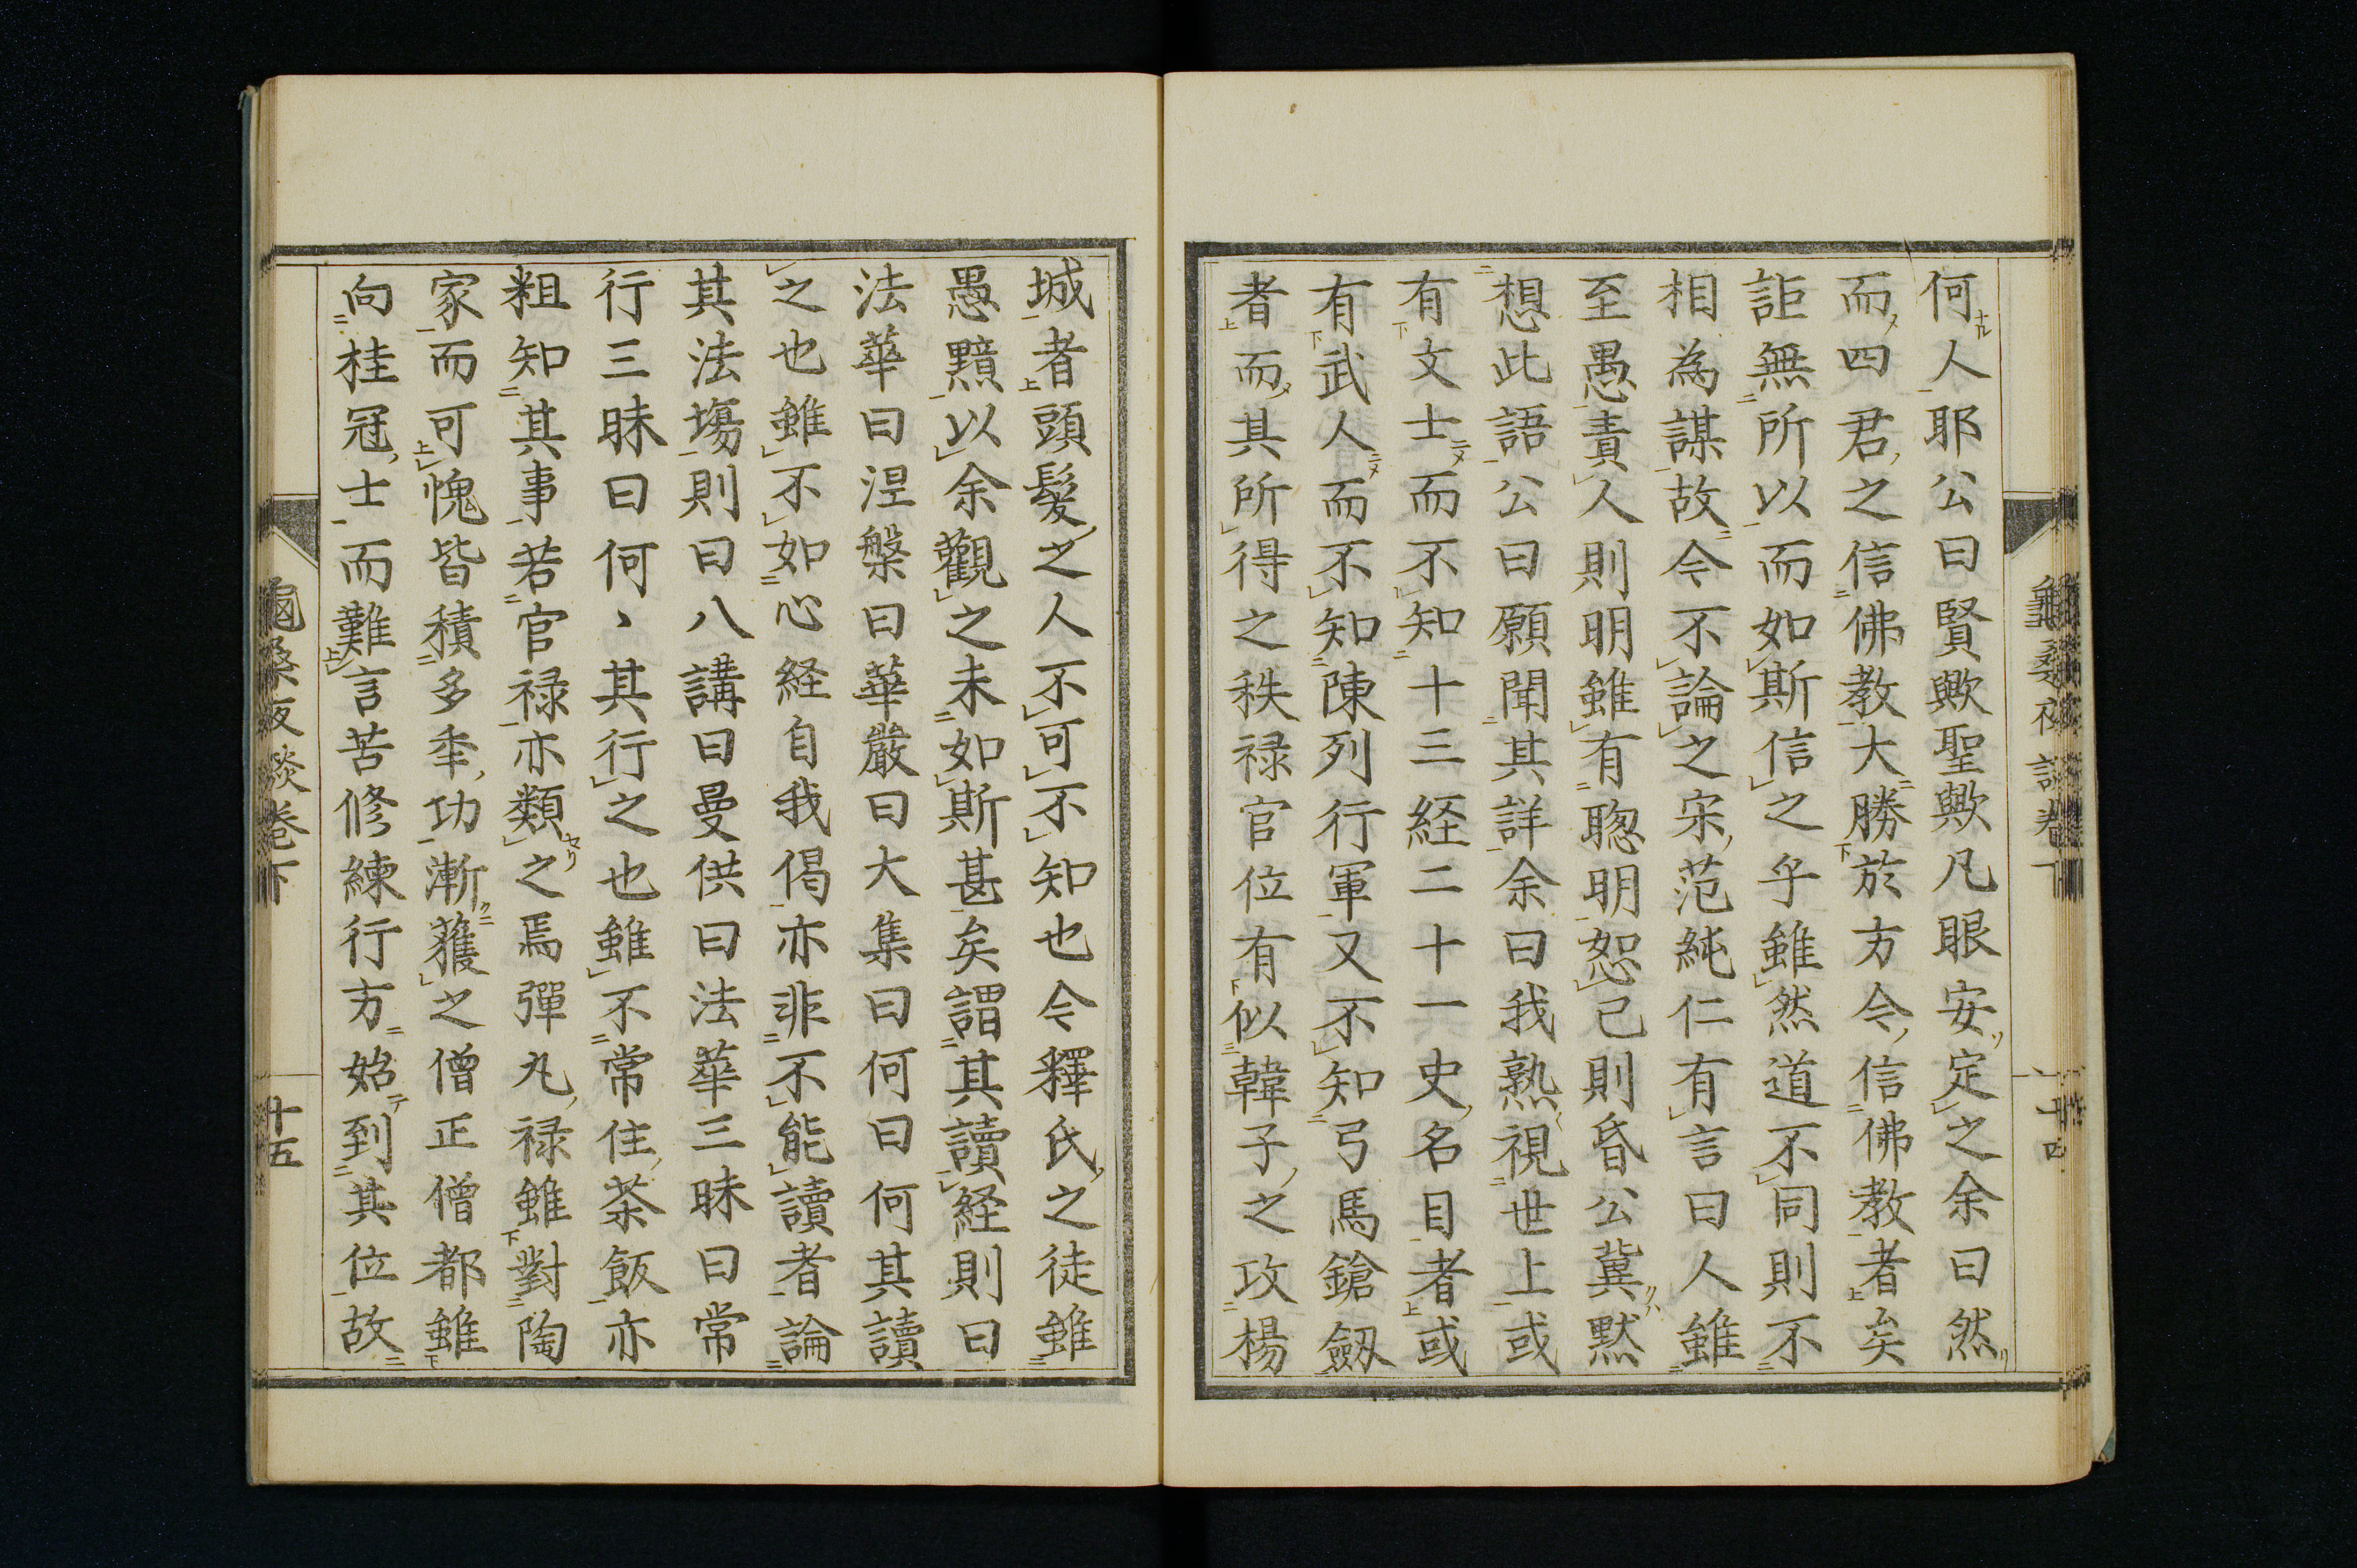 何人耶公曰賢歟聖歟凡眼安定之余曰然
而四君之信佛教大勝於方今信佛教者矣
詎無所以而如斯信之乎雖然道不同則不
相為謀故今不論之宋范純仁有言曰人雖
至愚責人則明雖有聰明恕己則昏公冀默
想此語公曰願聞其詳余曰我熟視世上或
有文士而不知十三経二十一史名目者或
有武人而不知陳列行軍又不知弓馬鎗劔
者而其所得之秩禄官位有似韓子之攻楊
城者頭髮之人不可不知也今釋氏之徒雖
愚黯以余觀之未如斯甚矣謂其讀経則曰
法華曰涅槃曰華嚴曰大集曰何曰何其讀
之也雖不如心経自我偈亦非不能讀者論
其法塲則曰八講曰曼供曰法華三昧曰常
行三昧曰何〻其行之也雖不常住茶飯亦
粗知其事若官禄亦類之焉彈丸禄雖對陶
家而可愧皆積多年功漸獲之僧正僧都雖
向桂冠士而難言苦修練行方始到其位故
卷下
十五